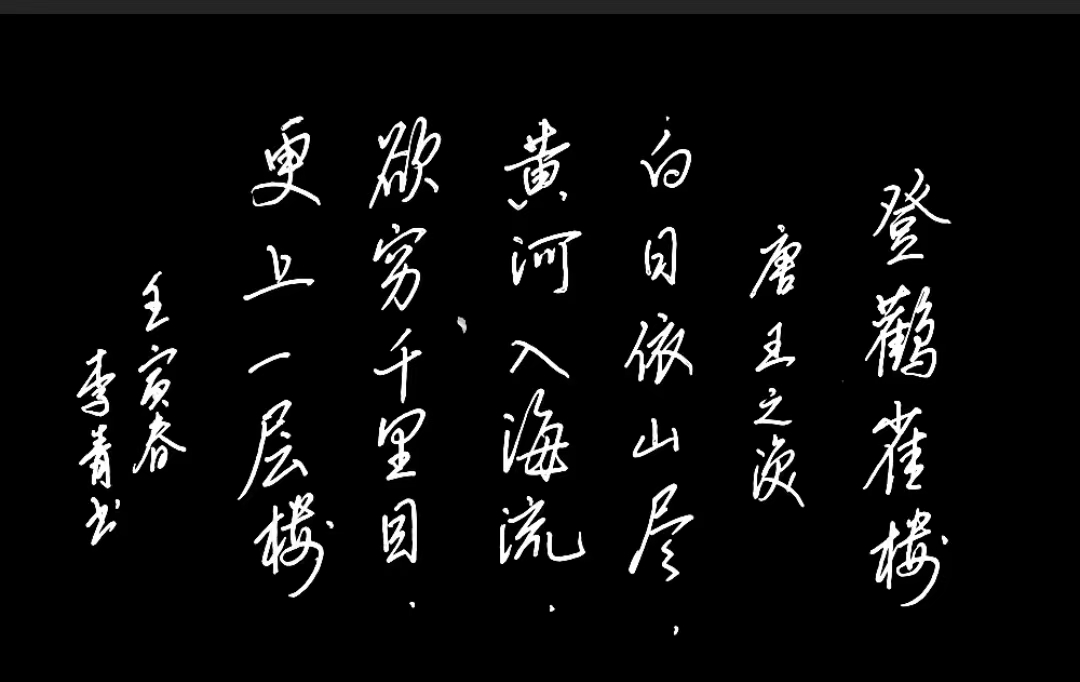 登鹳雀楼
唐王之涣
白日依山尽，
黄河入海流.
欲穷千里目.
更上一层楼
壬寅春
李青书